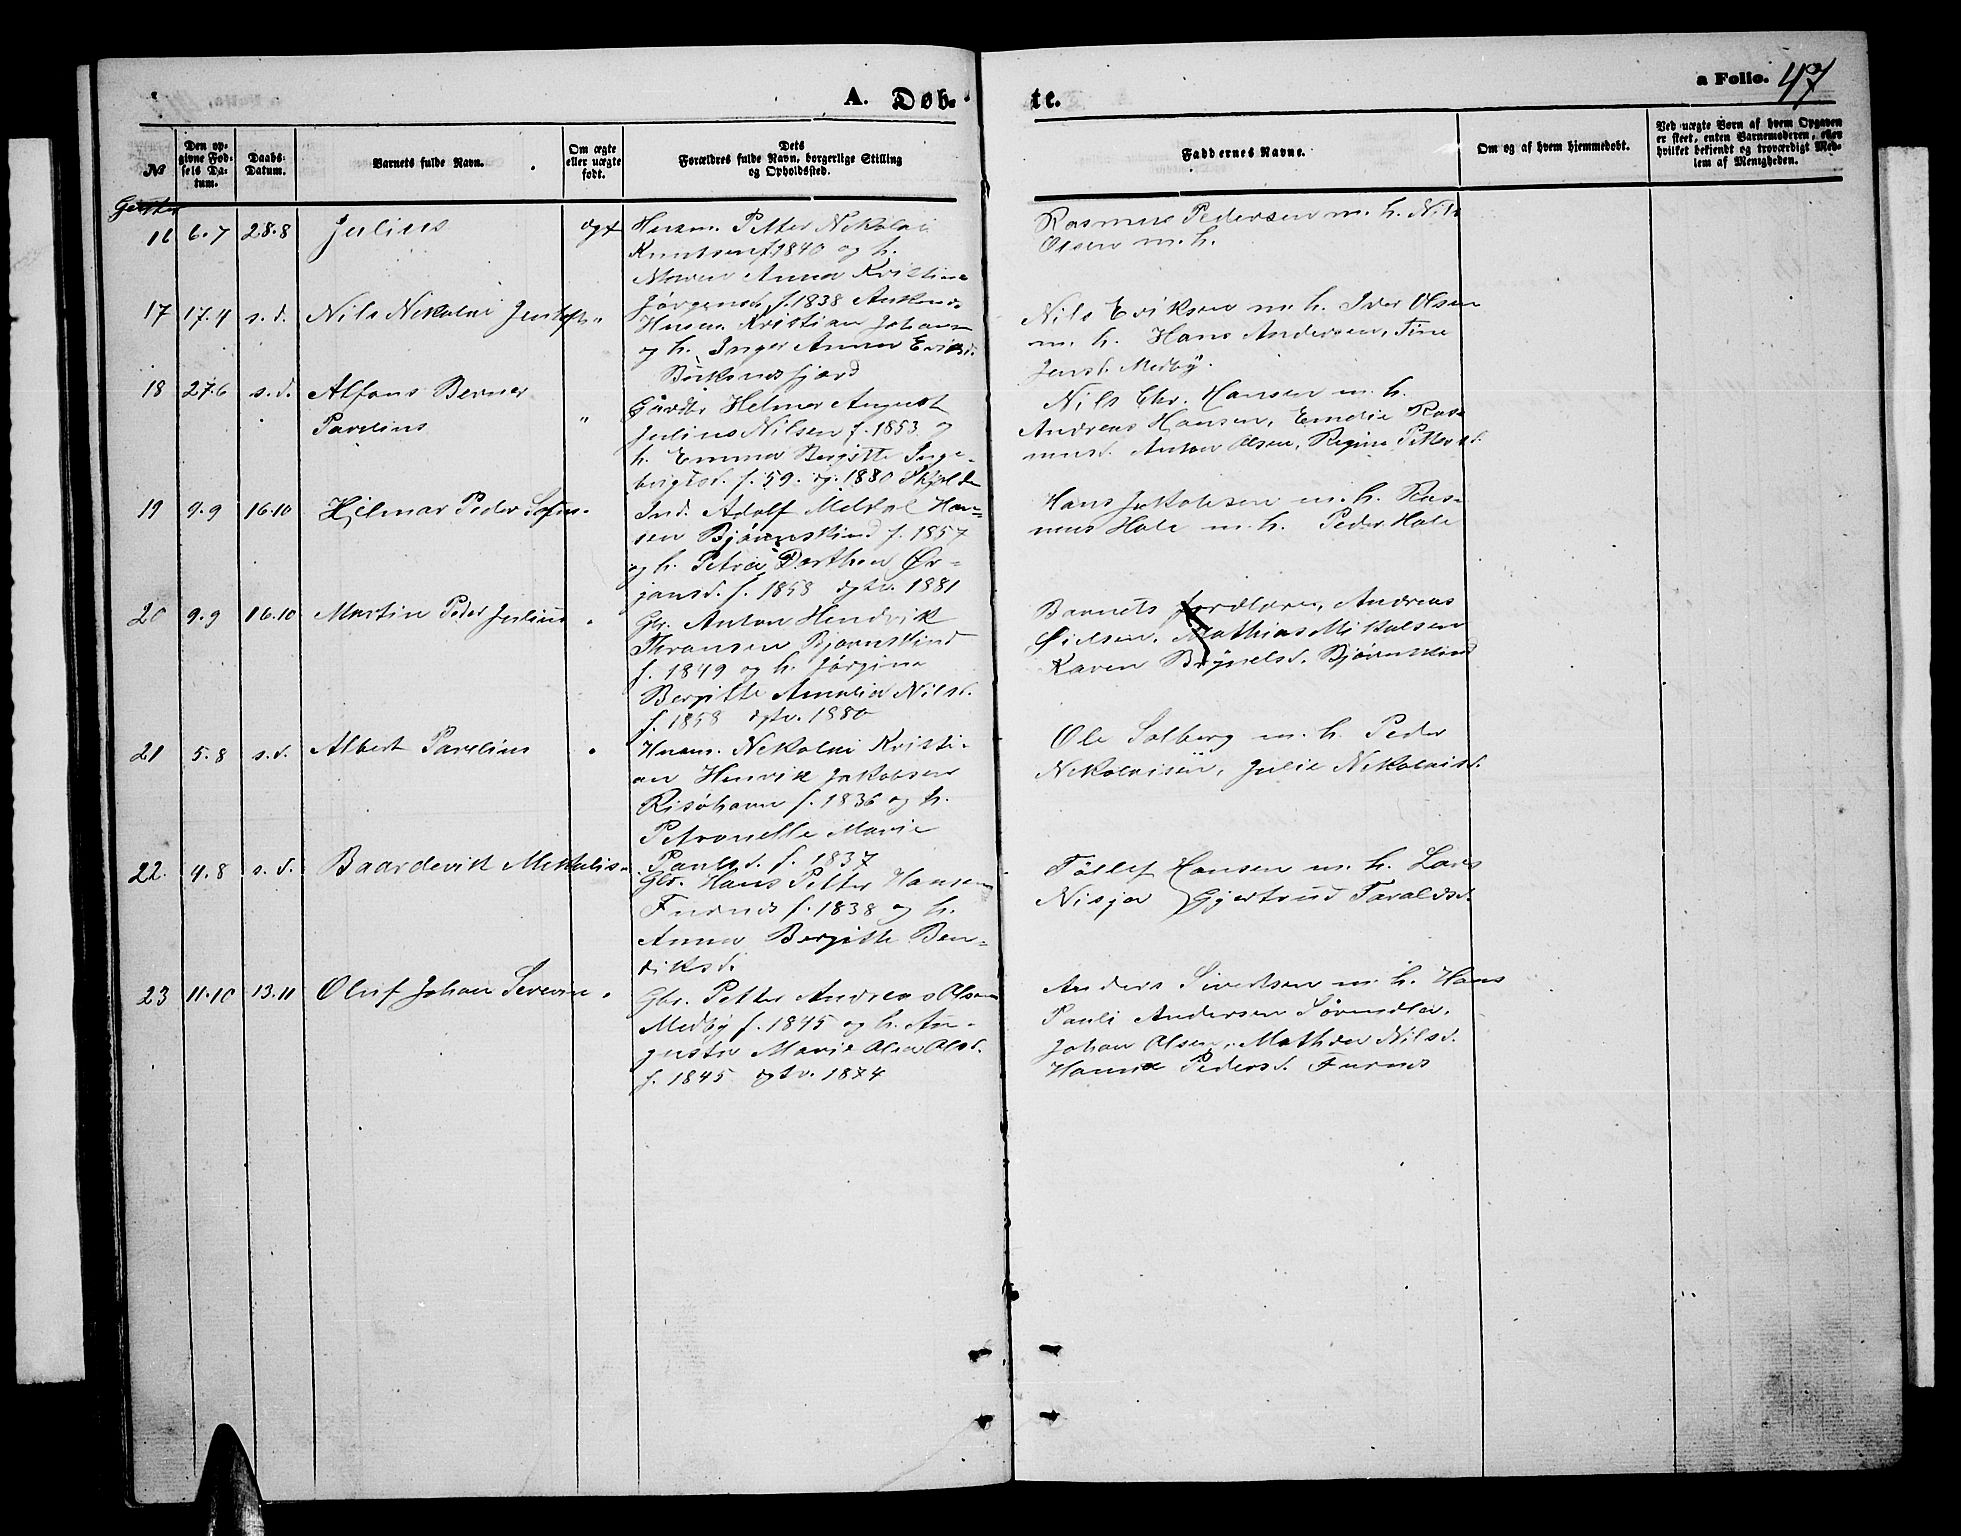 A. Døb-
te.
a Folio. 47
№
Den op-
givne Fød-
sels Da-
tum.
Daabs-
Datum.
Barnets fulde Navn.
Om ægte
eller uægte
født.
Dets
Forældres fulde Navn, borgerlige Stilling
og Opholdssted.
Faddernes Navne.
Om og af hvem hjemmedøbt.
Ved uægte Børn af hvem Opgaven
er skeet, enten Barnemoderen, eller
hvilket bekjendt og troværdigt Med-
lem af Menigheden.
16 6.7 28.8 Julius ægt
Husm. Petter Nikolai
Knutsen f. 1840 og h.
Maren Anna Kristine
Jørgensd. f. 1838
Rasmus Pedersen m. h. Nils
Olsen m. h.
17 17.4 s. d. Nils Nikolai "
Husm. Kristian Johans
og h. Inger Anna Eriksd.
Buksnesfjord
Nils Eriksen m. h. Iver Olsen
m. h. Hans Andersen, Tine
Jensd. Medby.
18 27.6 s. d. Alfons Berner
Parelius "
Gårdbr. Helmer August
Julius Nilsen f. 1853 og
h. Emma Bergitte Inge-
brigtsd. f. 59. og. 1880
Nils Chr. Hansen m. h.
Andreas Hansen, Emelie Ras-
musd. Anton Olsen, Regine Pettersd.
19 9.9 16.10 Hjelmar Peder "
Ind. Adolf Han-
sen Bjørnskind f. 1857
og h. Petra Dorthea Ør-
jansd. f. 1858 ægtv. 1881
Hans Jakobsen m. h. Ras-
mus Hole m. h. Peder Hole
20 9.9 16.10 Martin Peder Julius "
Gbr. Anton Hendrik
Thransen Bjørnskind
f. 1849 og h. Jørgine
Bergitte Amalia Nilsd.
f. 1858 ægtv. 1880
Barnets forældre, Andreas
Mathias Mikalsen
Karen Brynelsd. Bjørnskind
21 5.8 s. d. Albert Parelius "
Husm. Nikolai Kristi-
an Henrik Jakobsen
Risøhavn f. 1836 og h.
Petronelle Marie
Paulsd. f. 1837
Ole Solberg m. h. Peder
Nikolaisen, Julie Nikolaisd.
22. 4.8 s. d. Baardevik "
Gbr. Hans Petter Hansen
Furnes f. 1838 og h.
Anna Bergitte Ben-
diksd.
Tollef Hansen m. h. Lars
Gjertrud Taraldsd.
23 11.10 13.11 Oluf Johan Severin "
Gbr. Petter Andreas Olsen
Medby f. 1845 og h. Au-
gusta Marie Olea Olsd.
f. 1845 ægtv. 1874
Anders Sivertsen m. h. Hans
Pauli Andersen
Johan Olsen, Mathea Nilsd.
Hanna Pedersd. Furnes